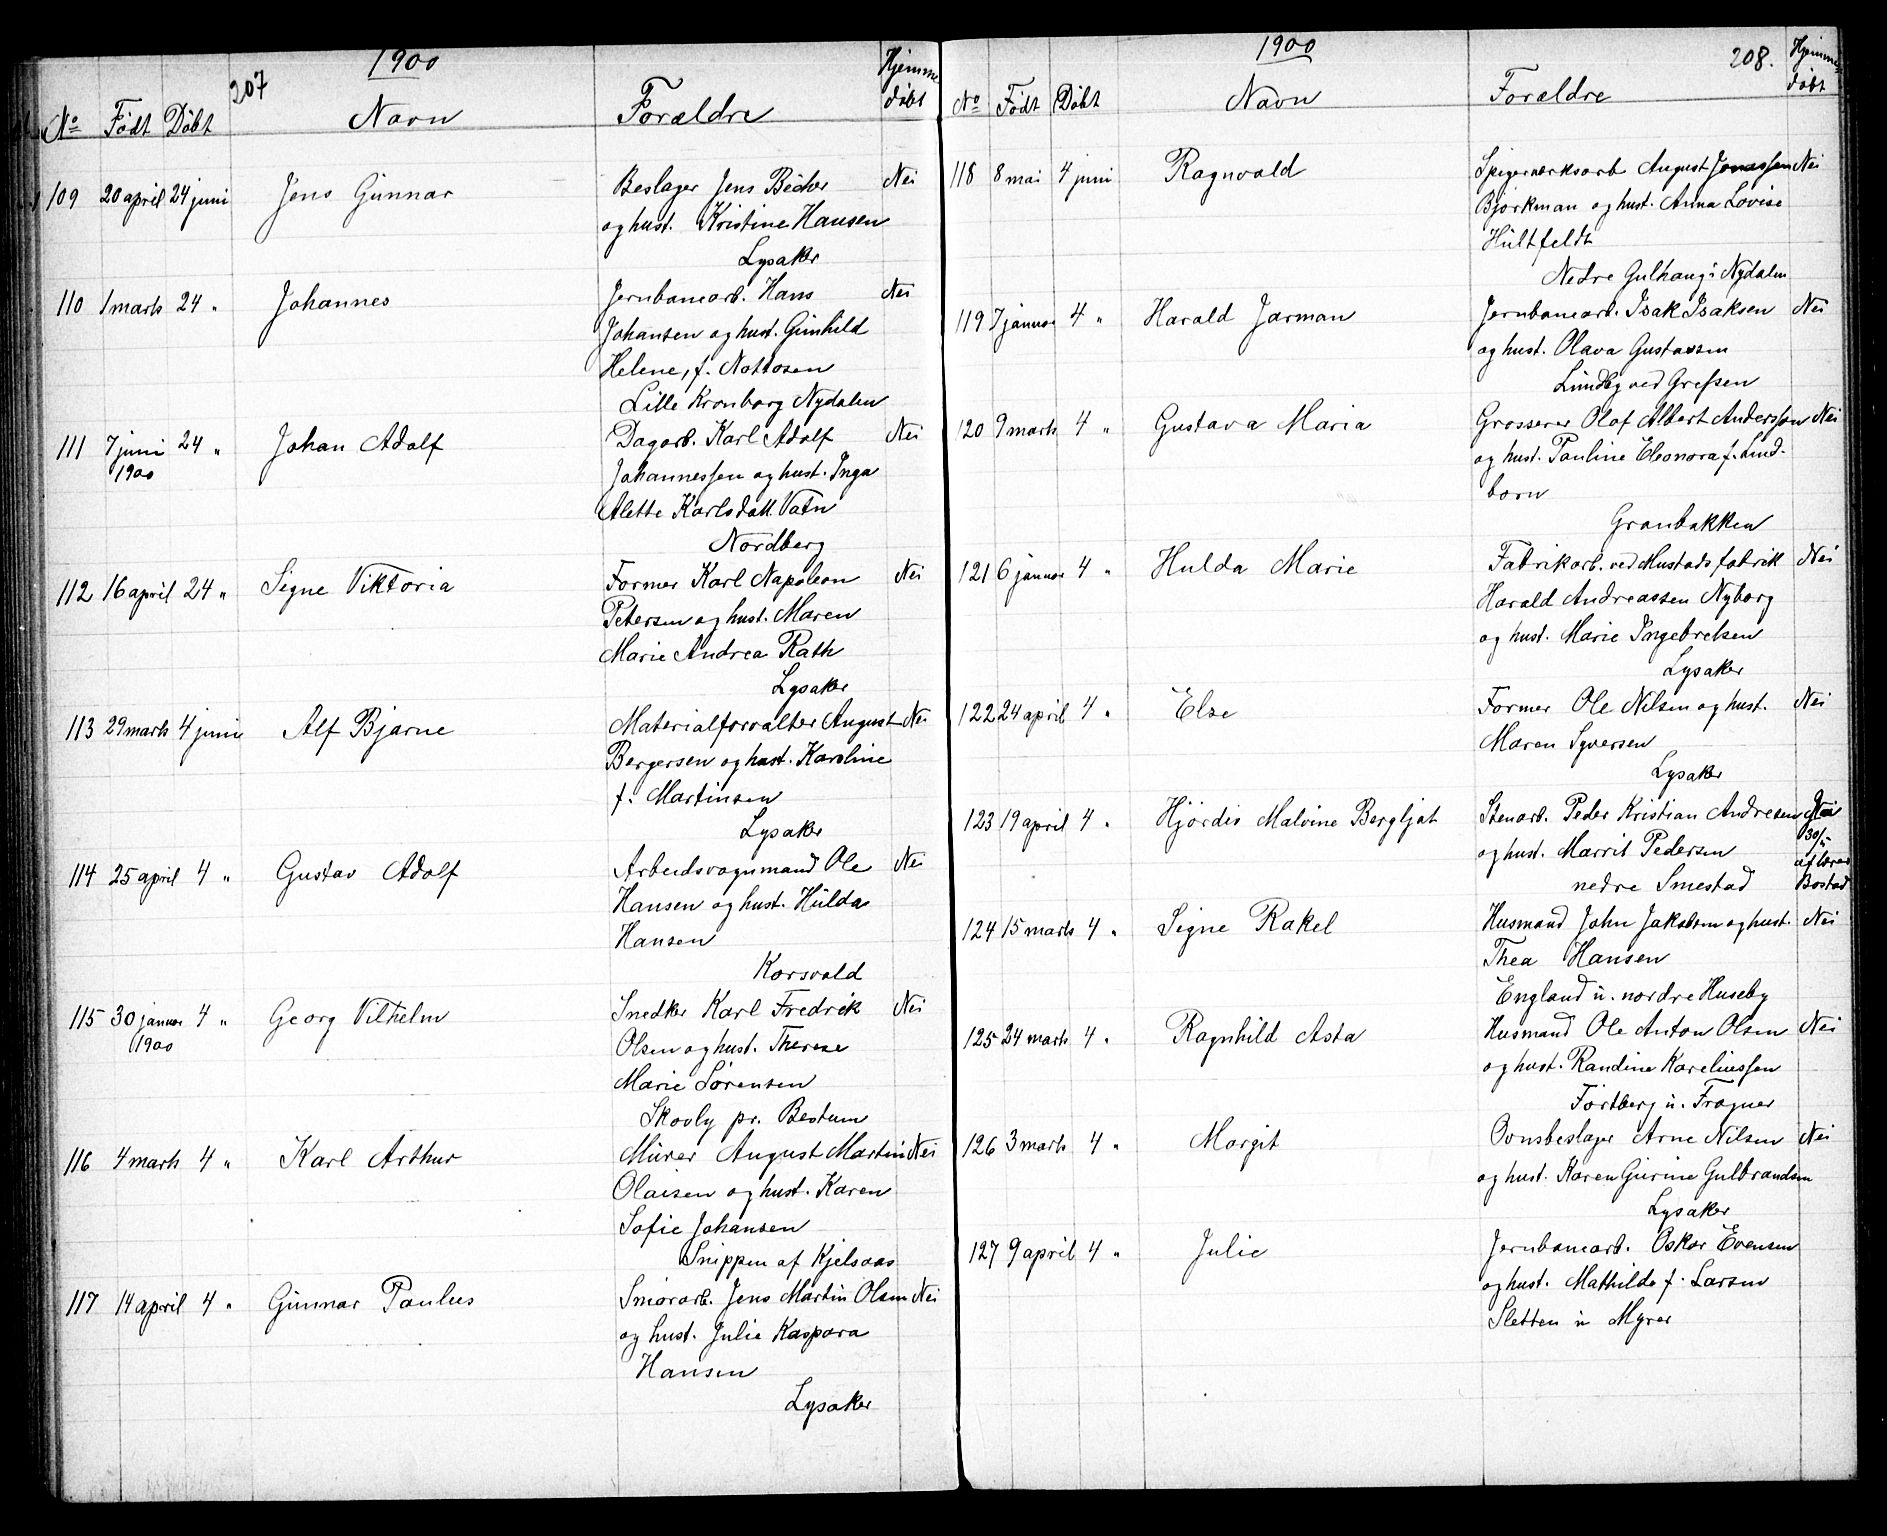 1900
207
Hjemme
døbt
No Født Døbt Navn Forældre
109 20 april 24 juni Jens Gunnar Beslager Jens Becher Nei
og hust. Kristine Hansen
Lysaker
110 1 marts 24 " Johannes Jernbanearb. Hans Nei
Johansen og hust. Gunhild
Helene, f. Nottosen
Lille Kronborg Nydalen
111 7 juni 24 " Johan Adolf Dagarb. Karl Adolf Nei
1900 Johannessen og hust. Inga
Alette Karlsdatt. Vatn
Nordberg
112 16 april 24 " Signe Viktoria Former Karl Napoleon Nei
Petersen og hust. Maren
Marie Andrea Rath
Lysaker
113 29 marts 4 juni Alf Bjarne Materialforvalter August Nei
Bergersen og hust. Karoline
f. Martinsen
Lysaker
114 25 april 4 " Gustav Adolf Arbeidsvognmand Ole Nei
Hansen og hust. Hulda
Hansen
Korsvold
115 30 januar 4 " Georg Vilhelm Snedker Karl Fredrik Nei
1900 Olsen og hust. Therese
Marie Sørensen
Skovly pr. Bestum
116 4 marts 4 " Karl Arthur Murer August Martin Nei
Olaisen og hust. Karen
Sofie Johansen
Snippen af Kjelsaas
117 14 april 4 " Gunnar Paulus Smørarb. Jens Martin Olsen Nei
og hust. Julie Kaspara
Hansen
Lysaker
1900
208.
Hjemme
døbt
No Født Døbt Navn Forældre
118 8 mai 4 juni Ragnvald Spigerverksarb August Jonassen Nei
Bjørkman og hust. Anna Lovise
Hultfeldt
Nedre Gulhaug i Nydalen
119 7 januar 4 " Harald Jarman Jernbanearb. Isak Isaksen Nei
og hust. Olava Gustavsen
Lundby ved Grefsen
120 9 marts 4 " Gustava Maria Grosserer Olof Albert Andersson Nei
og hust. Pauline Eleonora f. Lind-
born
Granbakken
121 6 januar 4 " Hulda Marie Fabrikarb. ved Mustads fabrik Nei
Harald Andreassen Nyborg
og hust. Marie Ingebretsen
Lysaker
122 24 april 4 " Else Former Ole Nilsen og hust. Nei
Maren Syversen
Lysaker
123 19 april 4 " Hjördis Malvine Bergljot Stenarb. Peder Kristian Andresen
og hust. Marrit Pedersen af lærer
nedre Smestad Bostad
124 15 marts 4 " Signe Rakel Husmand John Jakobsen og hust. Nei
Thea Hansen
England u. nordre Huseby
125 24 marts 4 " Ragnhild Asta Husmand Ole Anton Olsen Nei
og hust. Randine Kareliussen
Fortberg u. Frogner
126 3 marts 4 " Margit Ovnsbeslager Arne Nilsen Nei
og hust. Karen Gurine Gulbrandsen
Lysaker
127 9 april 4 " Julie Jernbanearb. Oskar Evensen
og hust. Mathilde f. Larsen
Sletten u Myrer